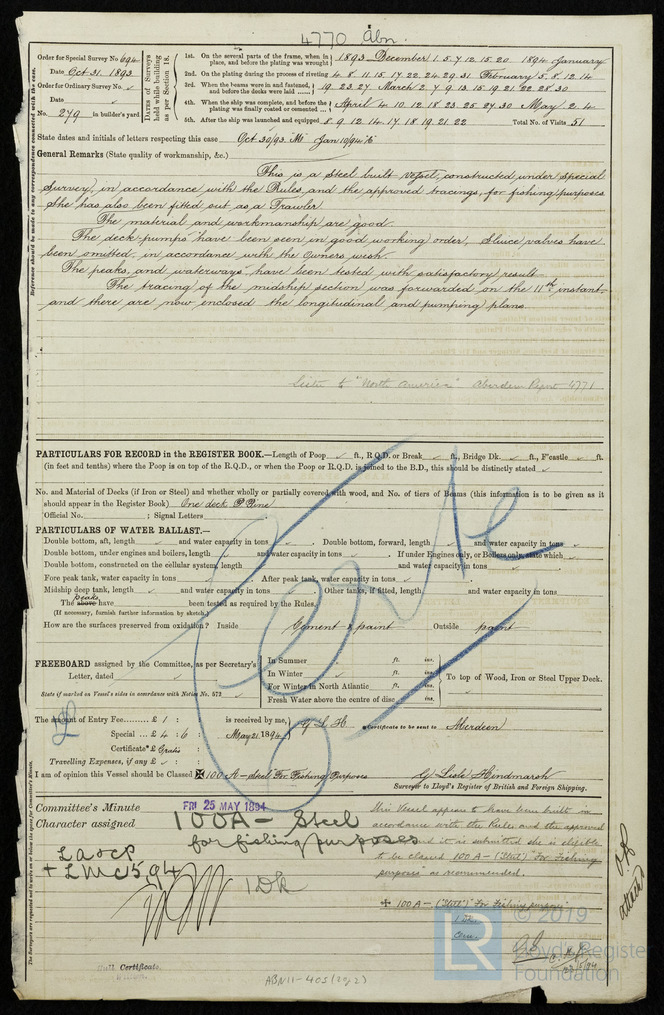 4770 Abn.
Order for Special Survey No 694
Date Oct 31. 1893
Order for Ordinary Survey No.
Date
No. 279 in builder's yard.
Dates of Surveys held while building as per Section 18.
1st. On the several parts of the frame, when in place, and before the plating was wrought 1893 December 1. 5. 7. 12. 15. 20 1894 January
2nd. On the plating during the process of riveting 4. 8. 11. 15. 17. 22. 24. 29. 31 February 5. 8. 12. 14
3rd. When the beams were in and fastened, and before the decks were laid 19. 23. 27 March 2. 7. 9. 13. 15. 19. 21. 22. 28. 30
4th. When the ship was complete, and before the plating was finally coated or cemented April 4. 10. 12. 18. 23. 25. 27. 30 May 2. 4
5th. After the ship was launched and equipped 8. 9. 12. 14. 17. 18. 19. 21. 22 Total No. of Visits 51
State dates and initials of letters respecting this case Oct 30/93 Mi Jan 10/94
General Remarks (State quality of workmanship, &c.)
This is a Steel built Vessel, constructed under Special
Survey, in accordance with the Rules, and the approved tracings, for fishing purposes
She has also been fitted out as a Trawler
The material and workmanship are good.
The deck pumps have been seen in good working order, Sluice valves have
been omitted, in accordance with the Owners wish.
The peaks, and waterways have been tested with satisfactory result
The tracing of the midship section was forwarded on the 11th instant
and there are now enclosed the longitudinal and pumping plans.
Sister to "North America" Aberdeen Report 4771
PARTICULARS FOR RECORD in the REGISTER BOOK.—Length of Poop ft., R.Q.D. or Break ft., Bridge Dk. ft., F'castle ft.
(in feet and tenths) where the Poop is on top of the R.Q.D., or when the Poop or R.Q.D. is joined to the B.D., this should be distinctly stated
No. and Material of Decks (if Iron or Steel) and whether wholly or partially covered with wood, and No. of tiers of Beams (this information is to be given as it
should appear in the Register Book) One deck P Pine
Official No. ; Signal Letters
PARTICULARS OF WATER BALLAST.—
Double bottom, aft, length and water capacity in tons . Double bottom, forward, length and water capacity in tons
Double bottom, under engines and boilers, length and water capacity in tons . If under Engines only, or Boilers only, state which
Double bottom, constructed on the cellular system, length and water capacity in tons
Fore peak tank, water capacity in tons . After peak tank, water capacity in tons
Midship deep tank, length and water capacity in tons . Other tanks, if fitted, length and water capacity in tons
The above peaks have been tested as required by the Rules.
(If necessary, furnish further information by sketch.)
How are the surfaces preserved from oxidation? Inside Cement & paint Outside paint
FREEBOARD assigned by the Committee, as per Secretary's
Letter, dated
State if marked on Vessel's sides in accordance with Notice No. 572
In Summer ft. ins.
In Winter ft. ins.
For Winter in North Atlantic ft. ins.
Fresh Water above the centre of disc ins.
To top of Wood, Iron or Steel Upper Deck.
The amount of Entry Fee £ 1 : : is received by me, G L H Certificate to be sent to Aberdeen
Special £ 4 : 6 : May 21 1894
Certificate £ Gratis
Travelling Expenses, if any £
I am of opinion this Vessel should be Classed ✠ 100 A – Steel For Fishing Purposes
G Lisle Hindmarsh
Surveyor to Lloyd's Register of British and Foreign Shipping.
Committee's Minute FRI 25 MAY 1894
Character assigned 100A – Steel
for fishing purposes
LA&CP
+ LMC 5.94
1 Dk
This Vessel appears to have been built in
accordance with the Rules and the approved
and it is submitted she is eligible
to be classed 100 A – ("Steel") "For Fishing
purposes" as recommended.
✠ 100 A – ("Steel") "For Fishing purposes"
1 Dk
Hull Certificate
ABN11-405 (2 of 2)
© 2019
LR
Lloyd's Register
Foundation